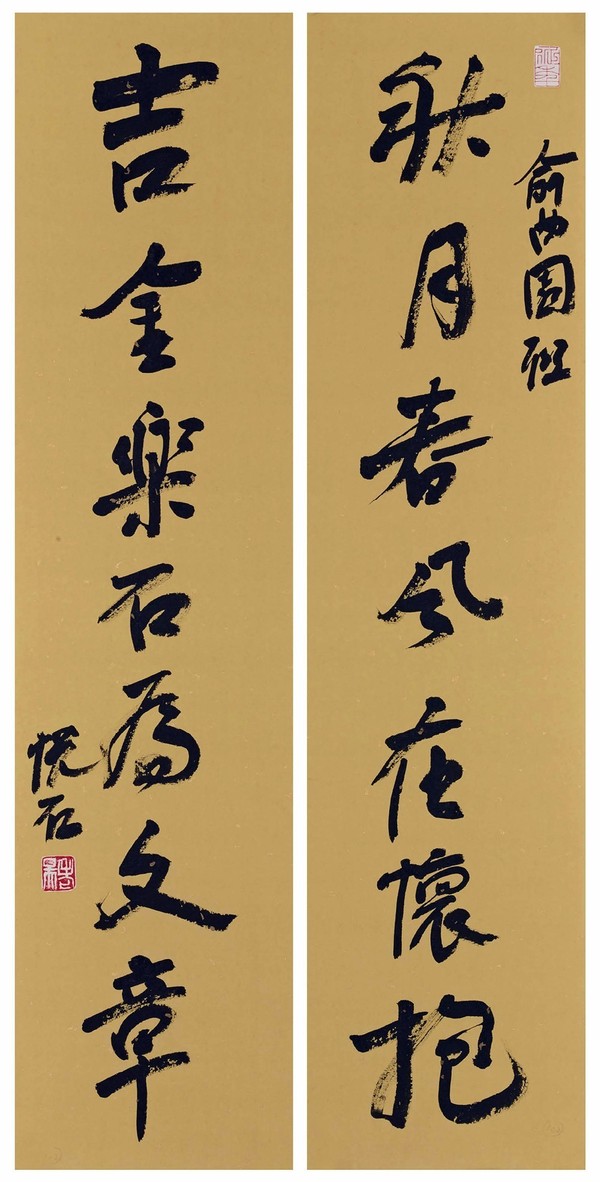 俞曲園聯
秋月春風在懷抱
吉金樂石為文章
悦石